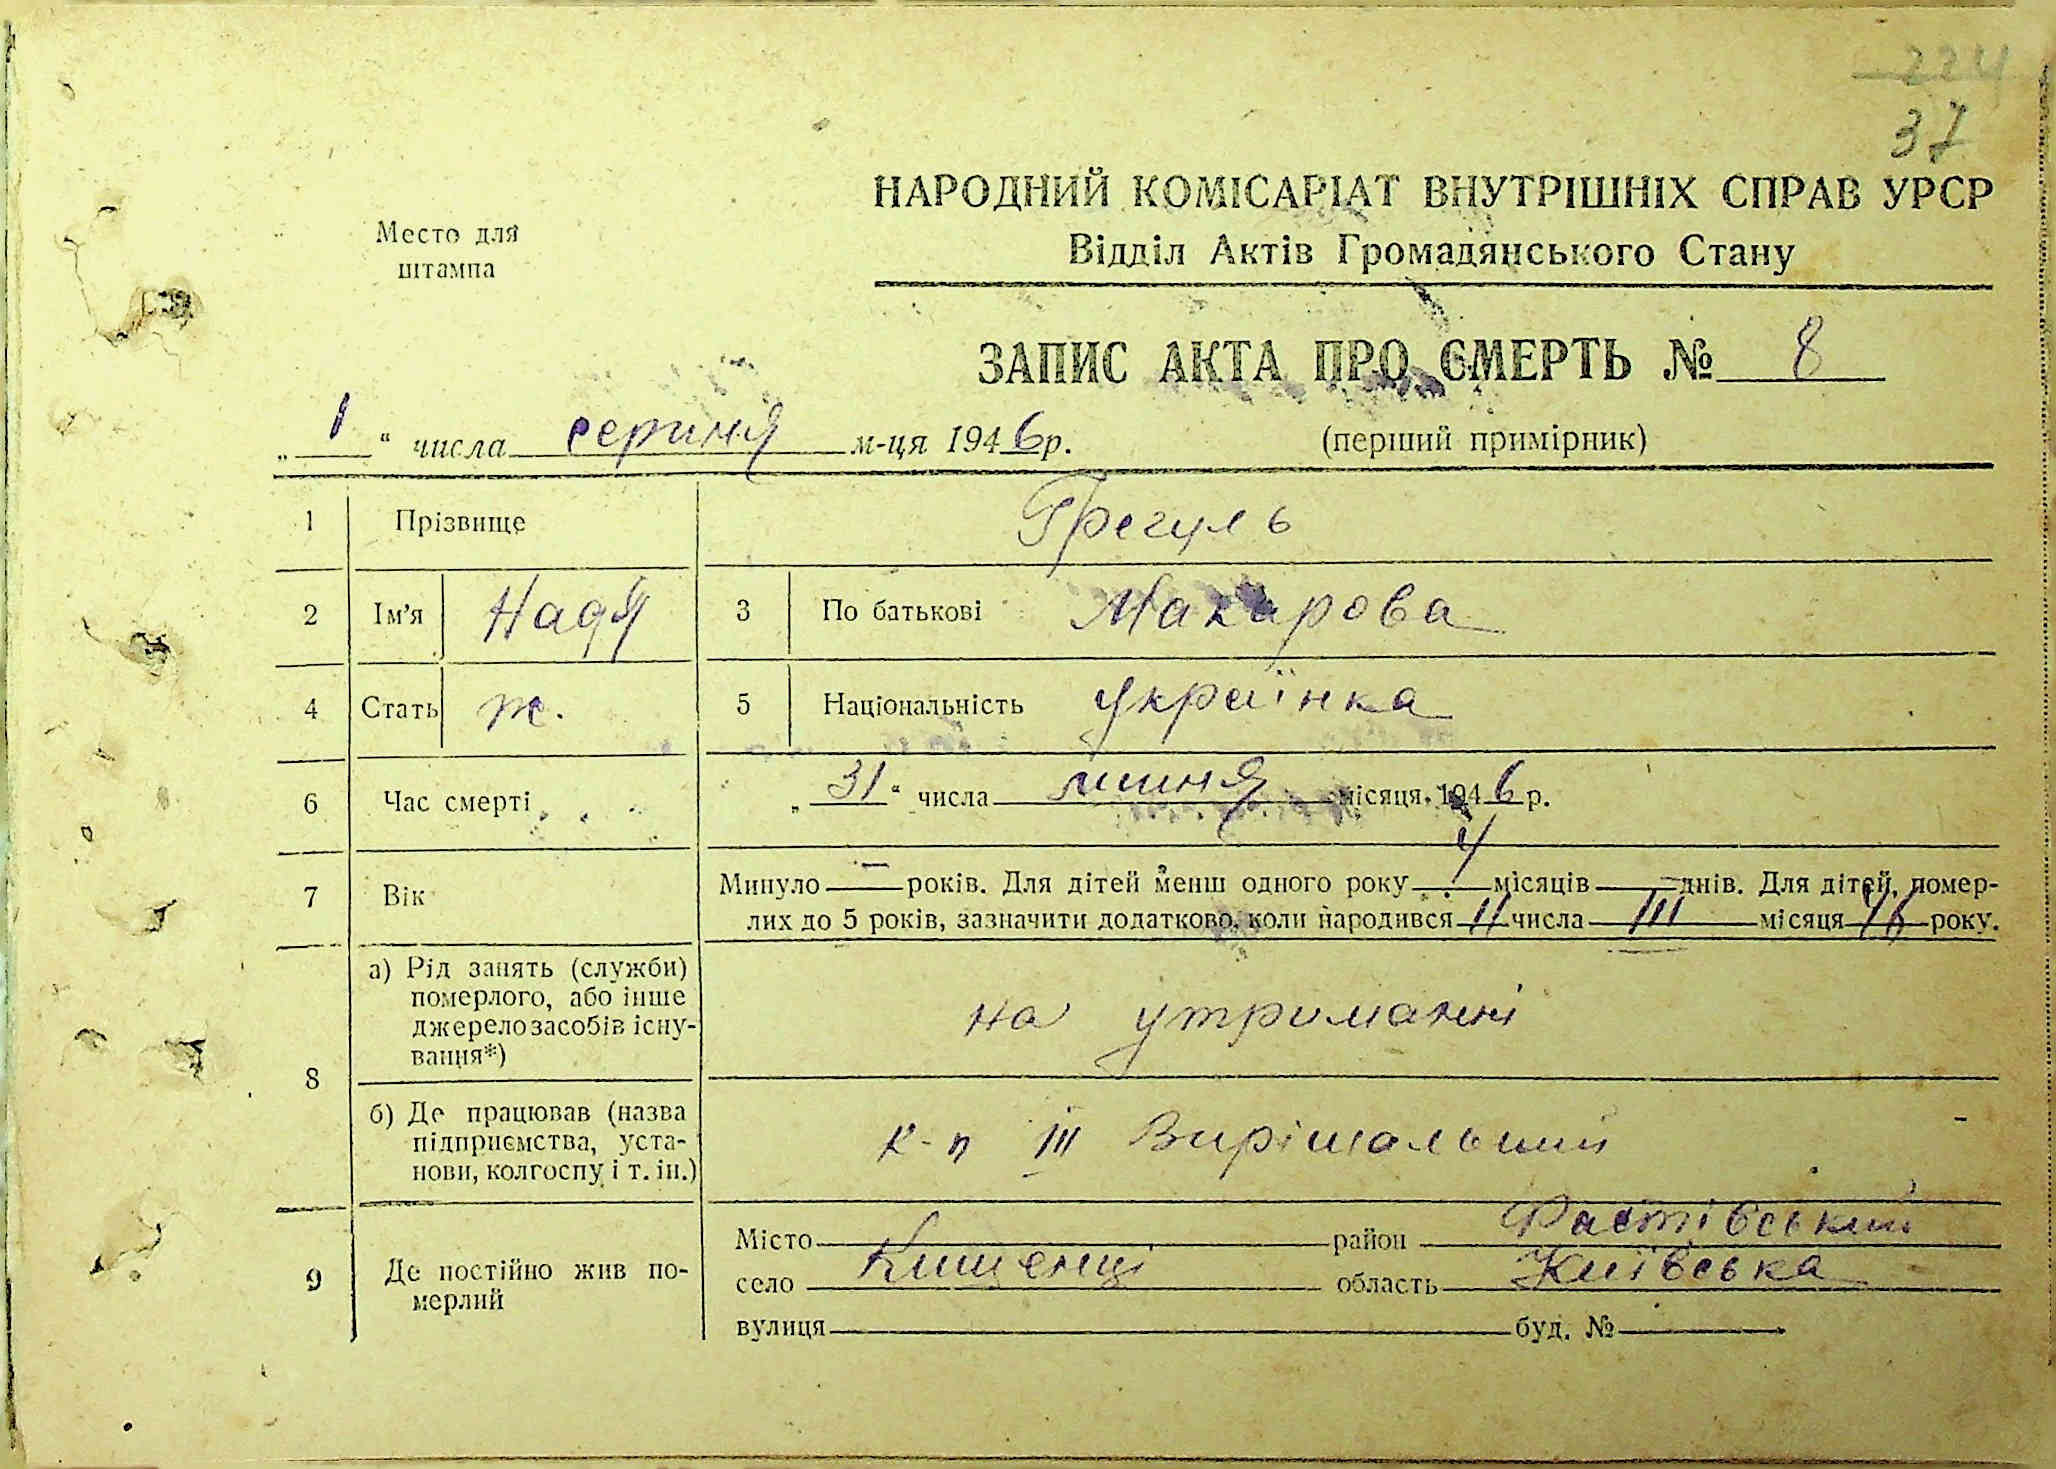 224
37
НАРОДНИЙ КОМІСАРІАТ ВНУТРІШНІХ СПРАВ УРСР
Место для штампа
Відділ Актів Громадянського Стану
ЗАПИС АКТА ПРО СМЕРТЬ № 8
„ 1 “ числа серпня м-ця 1946 р. (перший примірник)
1 Прізвище Грегуль
2 Ім'я Надя 3 По батькові Макарова
4 Стать ж. 5 Національність українка
6 Час смерті „ 31 “ числа липня місяця 1946 р.
7 Вік Минуло — років. Для дітей менш одного року 4 місяців — днів. Для дітей, помер-
лих до 5 років, зазначити додатково, коли народився 11 числа III місяця 46 року.
8 а) Рід занять (служби) померлого, або інше джерело засобів існу-вання*) на утриманні
б) Де працював (назва підприємства, уста-нови, колгоспу і т. ін.) к-п III Вирішальний
9 Де постійно жив по-мерлий
Місто район Фастівський
село область Київська
вулиця буд. №